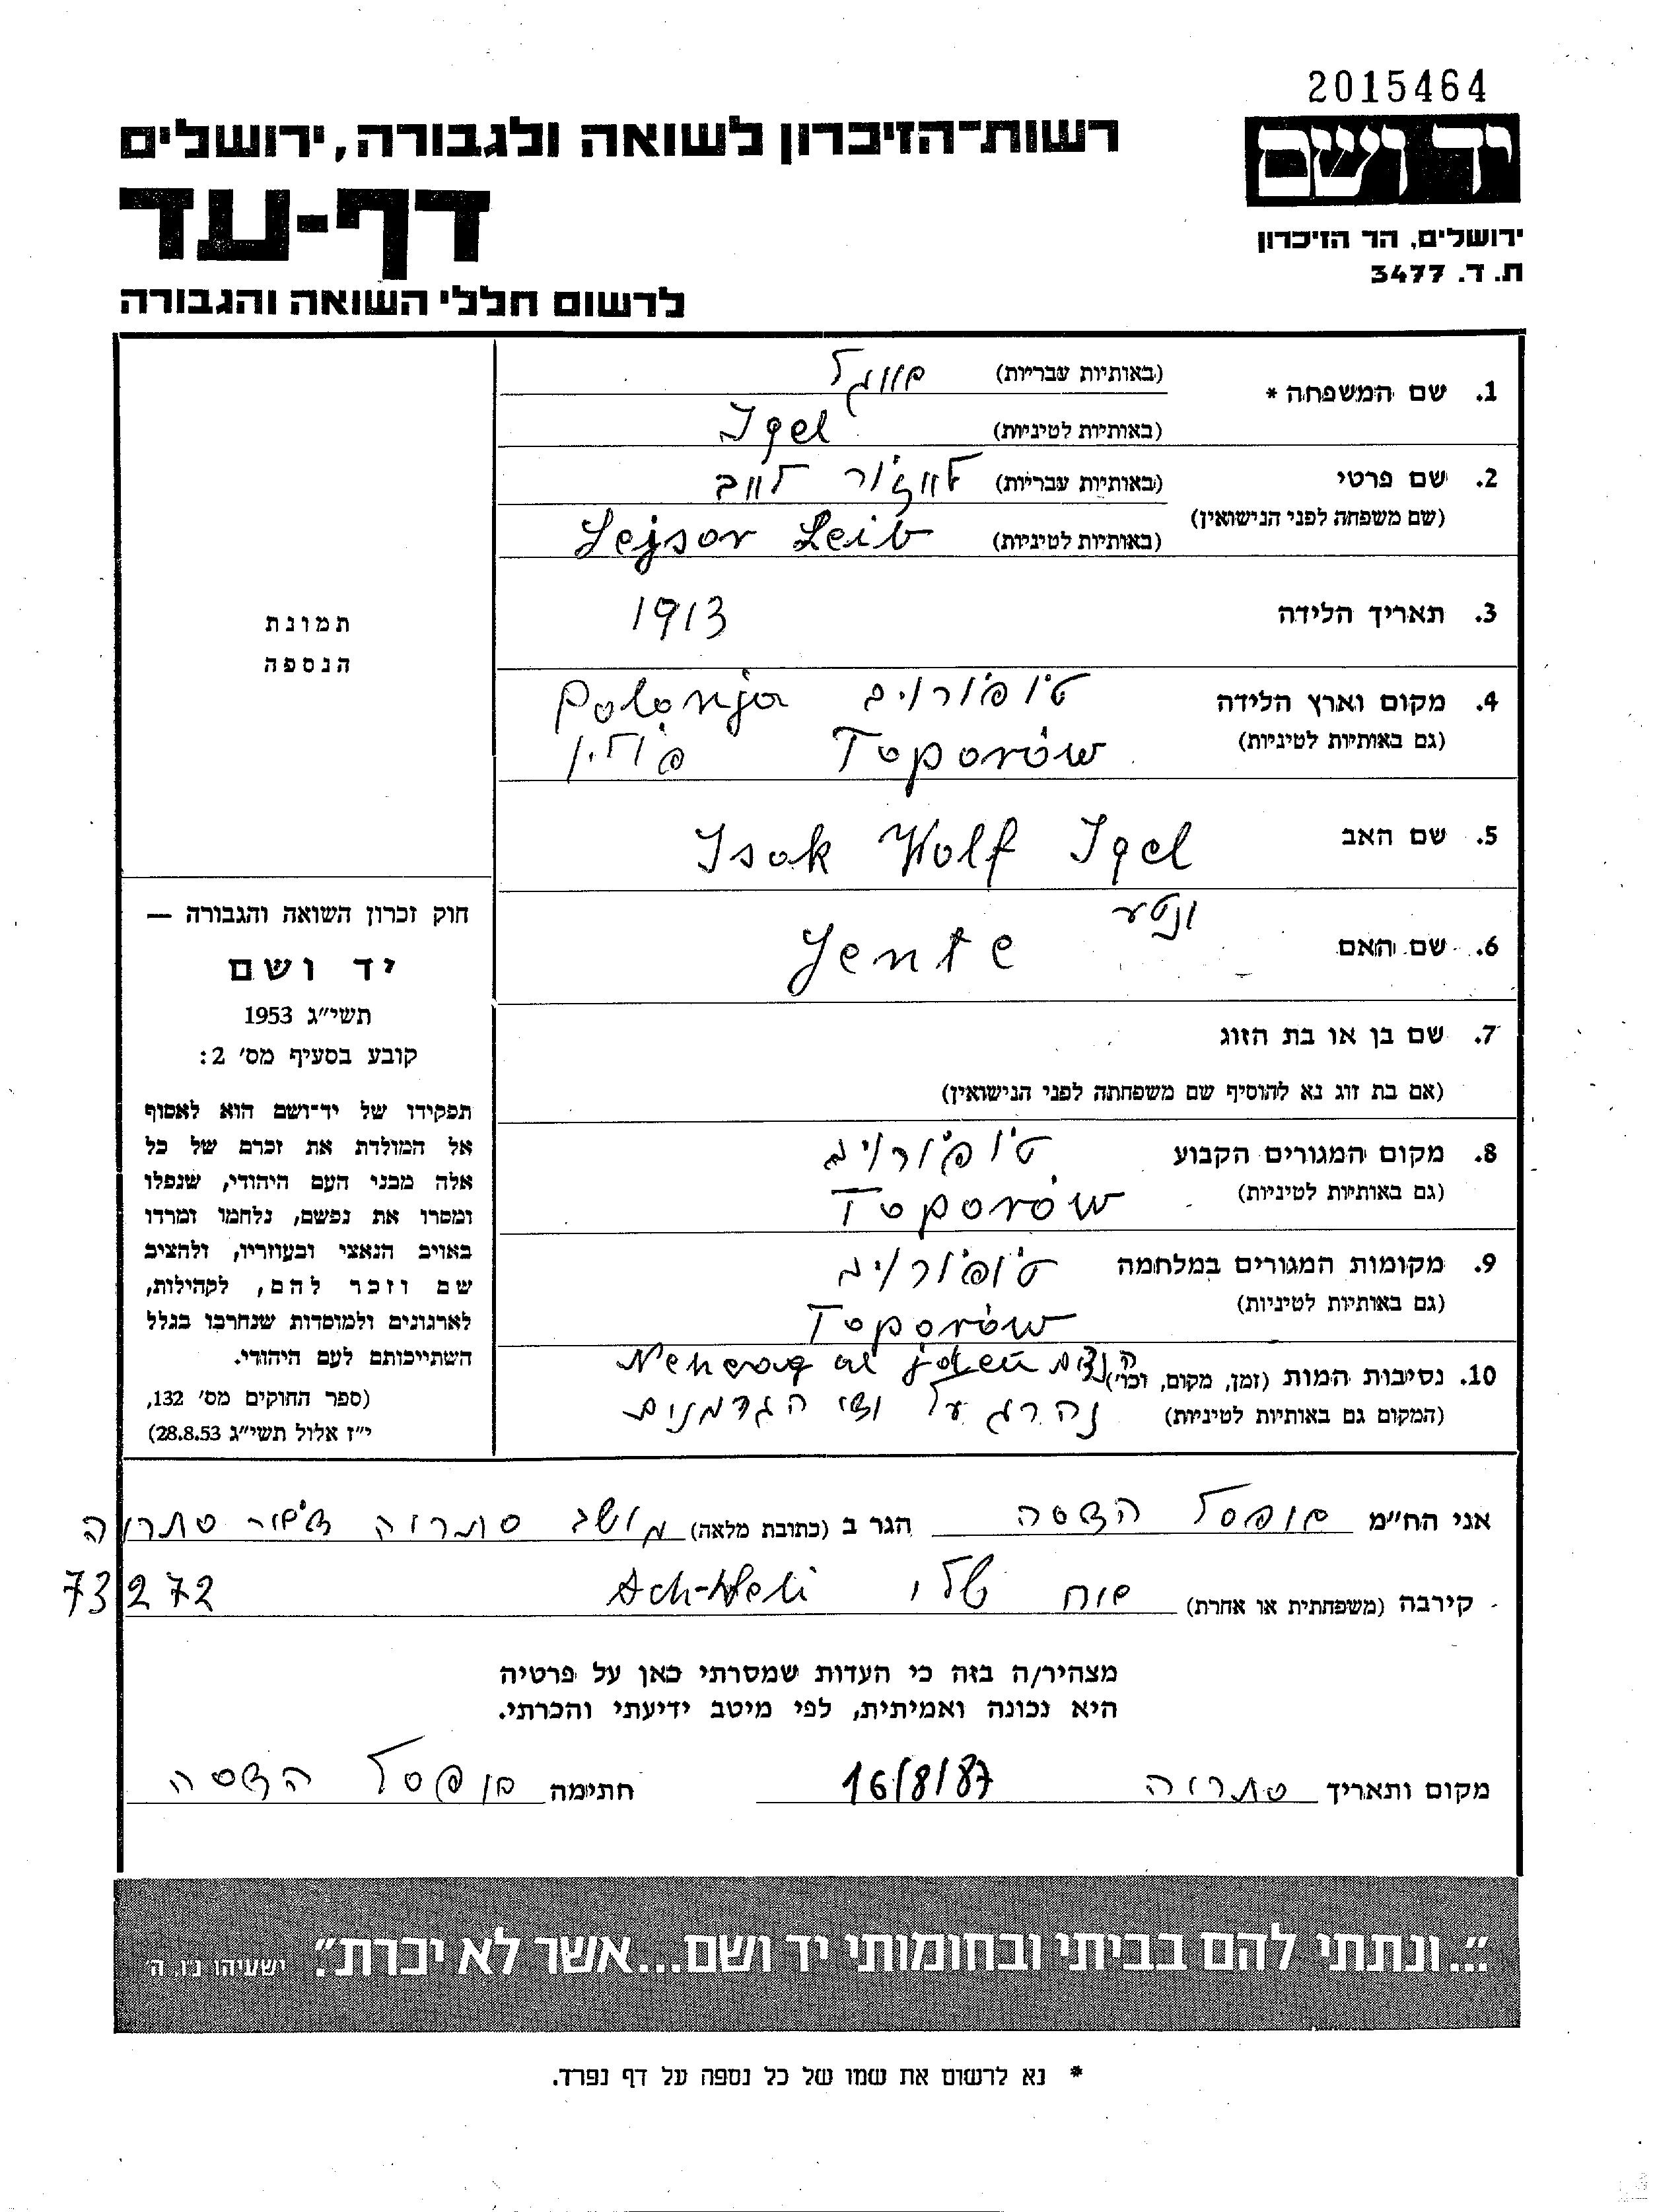 2015464
יד ושם
רשות־הזיכרון לשואה ולגבורה, ירושלים
דף-עד
ירושלים, הר הזיכרון
ת. ד. 3477
לרשום חללי השואה והגבורה
1. שם המשפחה * (באותיות עבריות)
(באותיות לטיניות) Igel
2. שם פרטי (באותיות עבריות)
(שם משפחה לפני הנישואין)
(באותיות לטיניות) Lejsor Leib
3. תאריך הלידה 1913
4. מקום וארץ הלידה Polonja
(גם באותיות לטיניות) Toporów
5. שם האב Isak Wolf Igel
6. שם האם
Jente
7. שם בן או בת הזוג
(אם בת זוג נא להוסיף שם משפחתה לפני הנישואין)
8. מקום המגורים הקבוע
(גם באותיות לטיניות) Toporów
9. מקומות המגורים במלחמה
(גם באותיות לטיניות) Toporów
10. נסיבות המות (זמן, מקום, וכו') al
(המקום גם באותיות לטיניות) נהרג על
תמונת
הנספה
חוק זכרון השואה והגבורה —
יד ושם
תשי"ג 1953
קובע בסעיף מס' 2:
תפקידו של יד־ושם הוא לאסוף
אל המולדת את זכרם של כל
אלה מבני העם היהודי, שנפלו
ומסרו את נפשם, נלחמו ומרדו
באויב הנאצי ובעוזריו, ולהציב
שם וזכר להם, לקהילות,
לארגונים ולמוסדות שנחרבו בגלל
השתייכותם לעם היהודי.
(ספר החוקים מס' 132,
י"ז אלול תשי"ג 28.8.53)
אני הח"מ הדסה הגר ב (כתובת מלאה) מושב סתריה
קירבה (משפחתית או אחרת) אח שלי Ach-scheli 73272
מצהיר/ה בזה כי העדות שמסרתי כאן על פרטיה
היא נכונה ואמיתית, לפי מיטב ידיעתי והכרתי.
מקום ותאריך סתריה 16/8/87 חתימה הדסה
"...ונתתי להם בביתי ובחומותי יד ושם...אשר לא יכרת". ישעיהו נ"ו, ה'
* נא לרשום את שמו של כל נספה על דף נפרד.